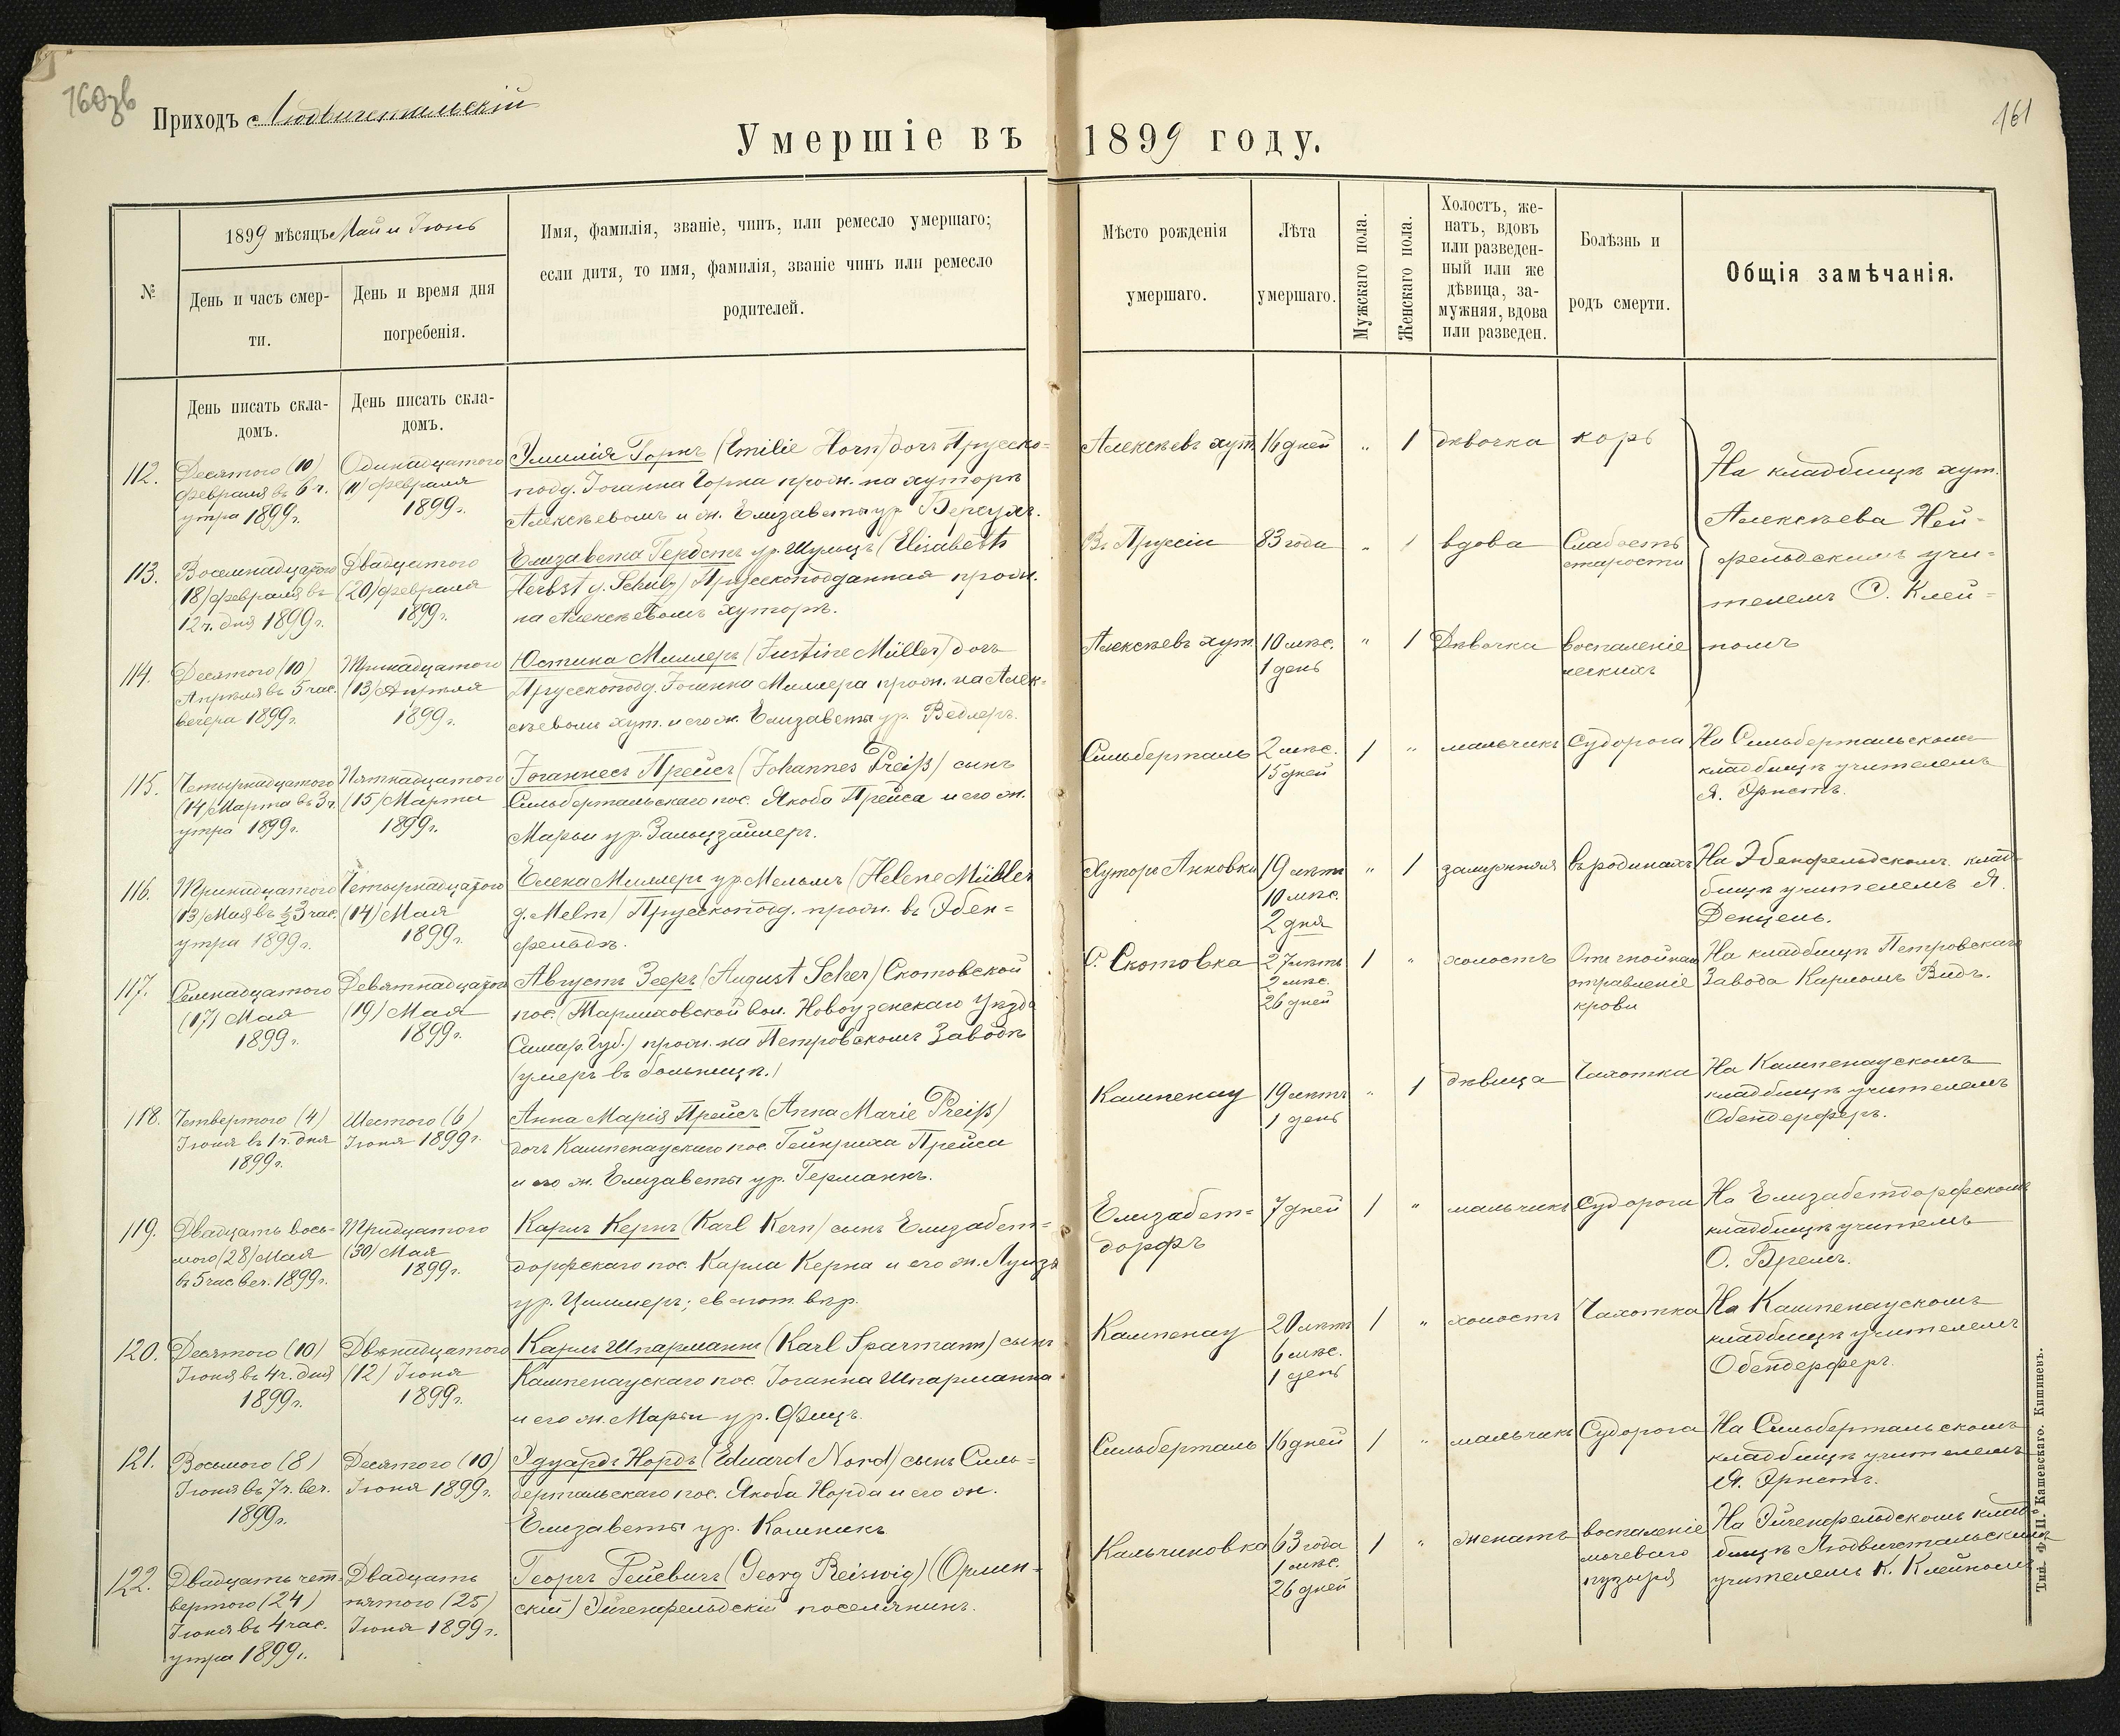 160зв
161
Приходъ Людвигстальскій
Умершіе въ 1899 году.
№
1899 мѣсяцъ Май и Іюнь
День и часъ смер-
ти.
День и время дня
погребенія.
Имя, фамилія, званіе, чинъ, или ремесло умершаго;
если дитя, то имя, фамилія, званіе чинъ или ремесло
родителей.
Мѣсто рожденія
умершаго.
Лѣта
умершаго.
Мужскаго пола.
Женскаго пола.
Холостъ, же-
натъ, вдовъ
или разведен-
ный или же
дѣвица, за-
мужняя, вдова
или разведен.
Болѣзнь и
родъ смерти.
Общія замѣчанія.
День писать скла-
домъ.
День писать скла-
домъ.
112.
Десятого (10)
Февраля въ 6 ч.
утра 1899г.
Одинадцатого
(11) февраля
1899г.
Эмилія Горнъ (Emilie Horn) дочь Прусско-
подд. Іоганна Горна прож. на хуторѣ
Алексѣевомъ и ж. Елизаветы ур.
Алексѣевъ хут.
16 дней
"
1
дѣвочка
корь
На кладбищѣ хут.
Алексѣева Ней-
фельдскимъ учи-
телемъ О. Клей-
номъ
113.
Восемнадцатого
(18) февраля въ
12 ч. дня 1899г.
Двадцатого
(20) февраля
1899г.
Елизавета Гербстъ ур. Шульцъ (Elisabeth
Herbst g. Schulz) Прусскоподданная прож.
на Алексѣевомъ хуторѣ.
Въ Пруссіи
83 года
"
1
вдова
Слабость
старости
114.
Десятого (10)
Апрѣля въ 5 час.
вечера 1899г.
Тринадцатого
(13) Апрѣля
1899г.
Юстина Миллеръ (Justine Müller) дочь
Прусскоподд. Іоганна Миллера прож. на Алек-
сѣевомъ хут. и его ж. Елизаветы ур. Ведлеръ.
Алексѣевъ хут.
10 мѣс.
1 день
"
1
Дѣвочка
воспаленіе
легкихъ
115.
Четырнадцатого
(14) Марта въ 3 ч.
утра 1899г.
Пятнадцатого
(15) Марта
1899г.
Іоганнесъ Прейсъ (Johannes Preiß) сынъ
Сильбертальскаго пос. Якоба Прейса и его ж.
Марьи ур. Зальцзайлеръ.
Сильберталь
2 мѣс.
15 дней
1
"
мальчикъ
Судорога
На Сильбертальскомъ
кладбищѣ учителемъ
Я. Эрнстъ.
116.
Тринадцатого
(13) Мая въ ½3 час.
утра 1899г.
Четырнадцатого
(14) Мая
1899г.
Елена Миллеръ ур. Мельмъ (Helene Müller
g. Melm) Прусскоподд. прож. въ Эбен-
фельдѣ.
Хуторъ Анновка
19 лѣтъ
10 мѣс.
2 дня
"
1
замужняя
въ родинахъ
На Эбенфельдскомъ клад-
бищѣ учителемъ Я.
Денцель.
117.
Семнадцатого
(17) Мая
1899г.
Девятнадцатого
(19) Мая
1899г.
Августъ Зееръ (August Seher) Скотовской
пос. (Тарлыковской вол. Новоузенскаго Уѣзда
Самар. Губ.) прож. на Петровскомъ Заводѣ
(умеръ въ больницѣ.)
С. Скотовка
27 лѣтъ
2 мѣс.
26 дней
1
"
холостъ
Отъ гнойнаго
отравленіе
крови
На кладбищѣ Петровскаго
Завода Карломъ Видъ.
118.
Четвертого (4)
Іюня въ 1 ч. дня
1899г.
Шестого (6)
Іюня 1899г.
Анна Марія Прейсъ (Anna Marie Preiß)
дочь Кампенаускаго пос. Гейнриха Прейса
и его ж. Елизаветы ур. Германнъ.
Кампенау
19 лѣтъ
1 день
"
1
дѣвица
Чахотка
На Кампенаускомъ
кладбищѣ учителемъ
Обендерферъ.
119.
Двадцать вось-
мого (28) Мая
въ 5 час. веч. 1899г.
Тридцатого
(30) Мая
1899г.
Карлъ Кернъ (Karl Kern) сынъ Елизабет-
дорфскаго пос. Карла Керна и его ж. Луизы
ур. Циммеръ; ев. лют. вѣр.
Елизабет-
дорфъ
7 дней
1
"
мальчикъ
Судорога
На Елизабетдорфскомъ
кладбищѣ учитель
О. Бремъ.
120.
Десятого (10)
Іюня въ 4 ч. дня
1899г.
Двѣнадцатого
(12) Іюня
1899г.
Карлъ Шпарманнъ (Karl Sparmann) сынъ
Кампенаускаго пос. Іоганна Шпарманна
и его ж. Марьи ур. Фицъ.
Кампенау
20 лѣтъ
6 мѣс.
1 день
1
"
холостъ
Чахотка
На Кампенаускомъ
кладбищѣ учителемъ
Обендерферъ.
121.
Восьмого (8)
Іюня въ 7 ч. веч.
1899г.
Десятого (10)
Іюня 1899г.
Эдуардъ Нордъ (Eduard Nord) сынъ Силь-
бертальскаго пос. Якоба Норда и его ж.
Елизаветы ур. Колникъ
Сильберталь
16 дней
1
"
мальчикъ
Судорога
На Сильбертальскомъ
кладбищѣ учителемъ
Я. Эрнстъ.
122.
Двадцать чет-
вертого (24)
Іюня въ 4 час.
утра 1899г.
Двадцать
пятого (25)
Іюня 1899г.
Георгъ Рейсвигъ (Georg Reiswig) (Орлин-
скій) Эйгенфельдскій поселянинъ.
Кальчиновка
63 года
1 мѣс.
26 дней
1
"
женатъ
воспаленіе
мочеваго
пузыря
На Эйгенфельдскомъ клад-
бищѣ Людвигстальскимъ
учителемъ К. Клейномъ
Тип. Ф. П. Кашевскаго. Кишиневъ.